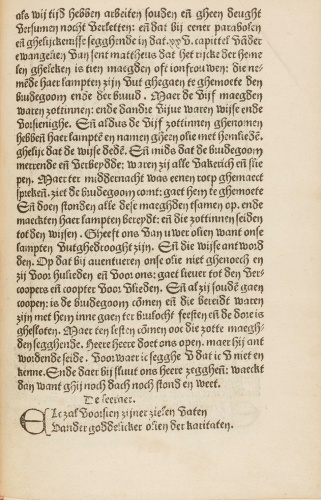 als wij tijd hebben arbeiten souden eñ gheen deught
versumen nocht verletten: eñ dat bij eener parabolen
eñ ghelijckenisse segghende in dat .xxv. capittel vāder
ewangelien van sent mattheus dat het rijcke der heme
len gheleken is tien maegden oft ionfrouwen: die ne-
mēde haer lampten zijn vut ghegaen te ghemoete den
brudegoom ende der bruud. Maer de vijf maegden
waren zottinnen: ende dandre vijue waren wijse ende
vorsienighe. Eñ aldus de vijf zottinnen ghenomen
hebbeñ haer lamptē en namen gheen olie met hemliedē.
ghelijc dat de wijse dedē. Eñ mids dat de brudegoom
merrende eñ verbeydde: waren zij alle vakerich eñ slie
pen. Maer ter middernacht was eenen roep ghemaect
sprekeñ. ziet de brudegoom comt: gaet hem te ghemoete
Eñ doen stonden alle dese maeghdē tsamen op. ende
maeckten haer lampten bereydt: eñ die zottinnen seiden
tot den wijsen. Gheeft ons van uwer olien want onse
lampten vutghedrooght zijn. Eñ die wijse antword
den. Op dat bij auentueren onse olie niet ghenoech en
zij voor hulieden eñ voor ons: gaet lieuer tot den ver-
coopers en coopter voor vlieden. Eñ al zij soudē gaen
coopen: is de brudegoom cōmen eñ die bereidt waren
zijn met hem inne gaen ter brulocht feesten eñ de dore is
ghesloten. Maer ten lesten cōmen ooc die zotte maegh-
den segghende. Heere heere doet ons open. maer hij ant
wordende seide. Voorwaer ic segghe v dat ic v niet en
kenne. Ende daer bij sluut ons heere zeggheñ: waeckt
dan want ghij noch dach noch stond en weet.
De leeraer.
Ele zal voorsien zijner zielen vaten
Vander goddelicker olien der karitaten.